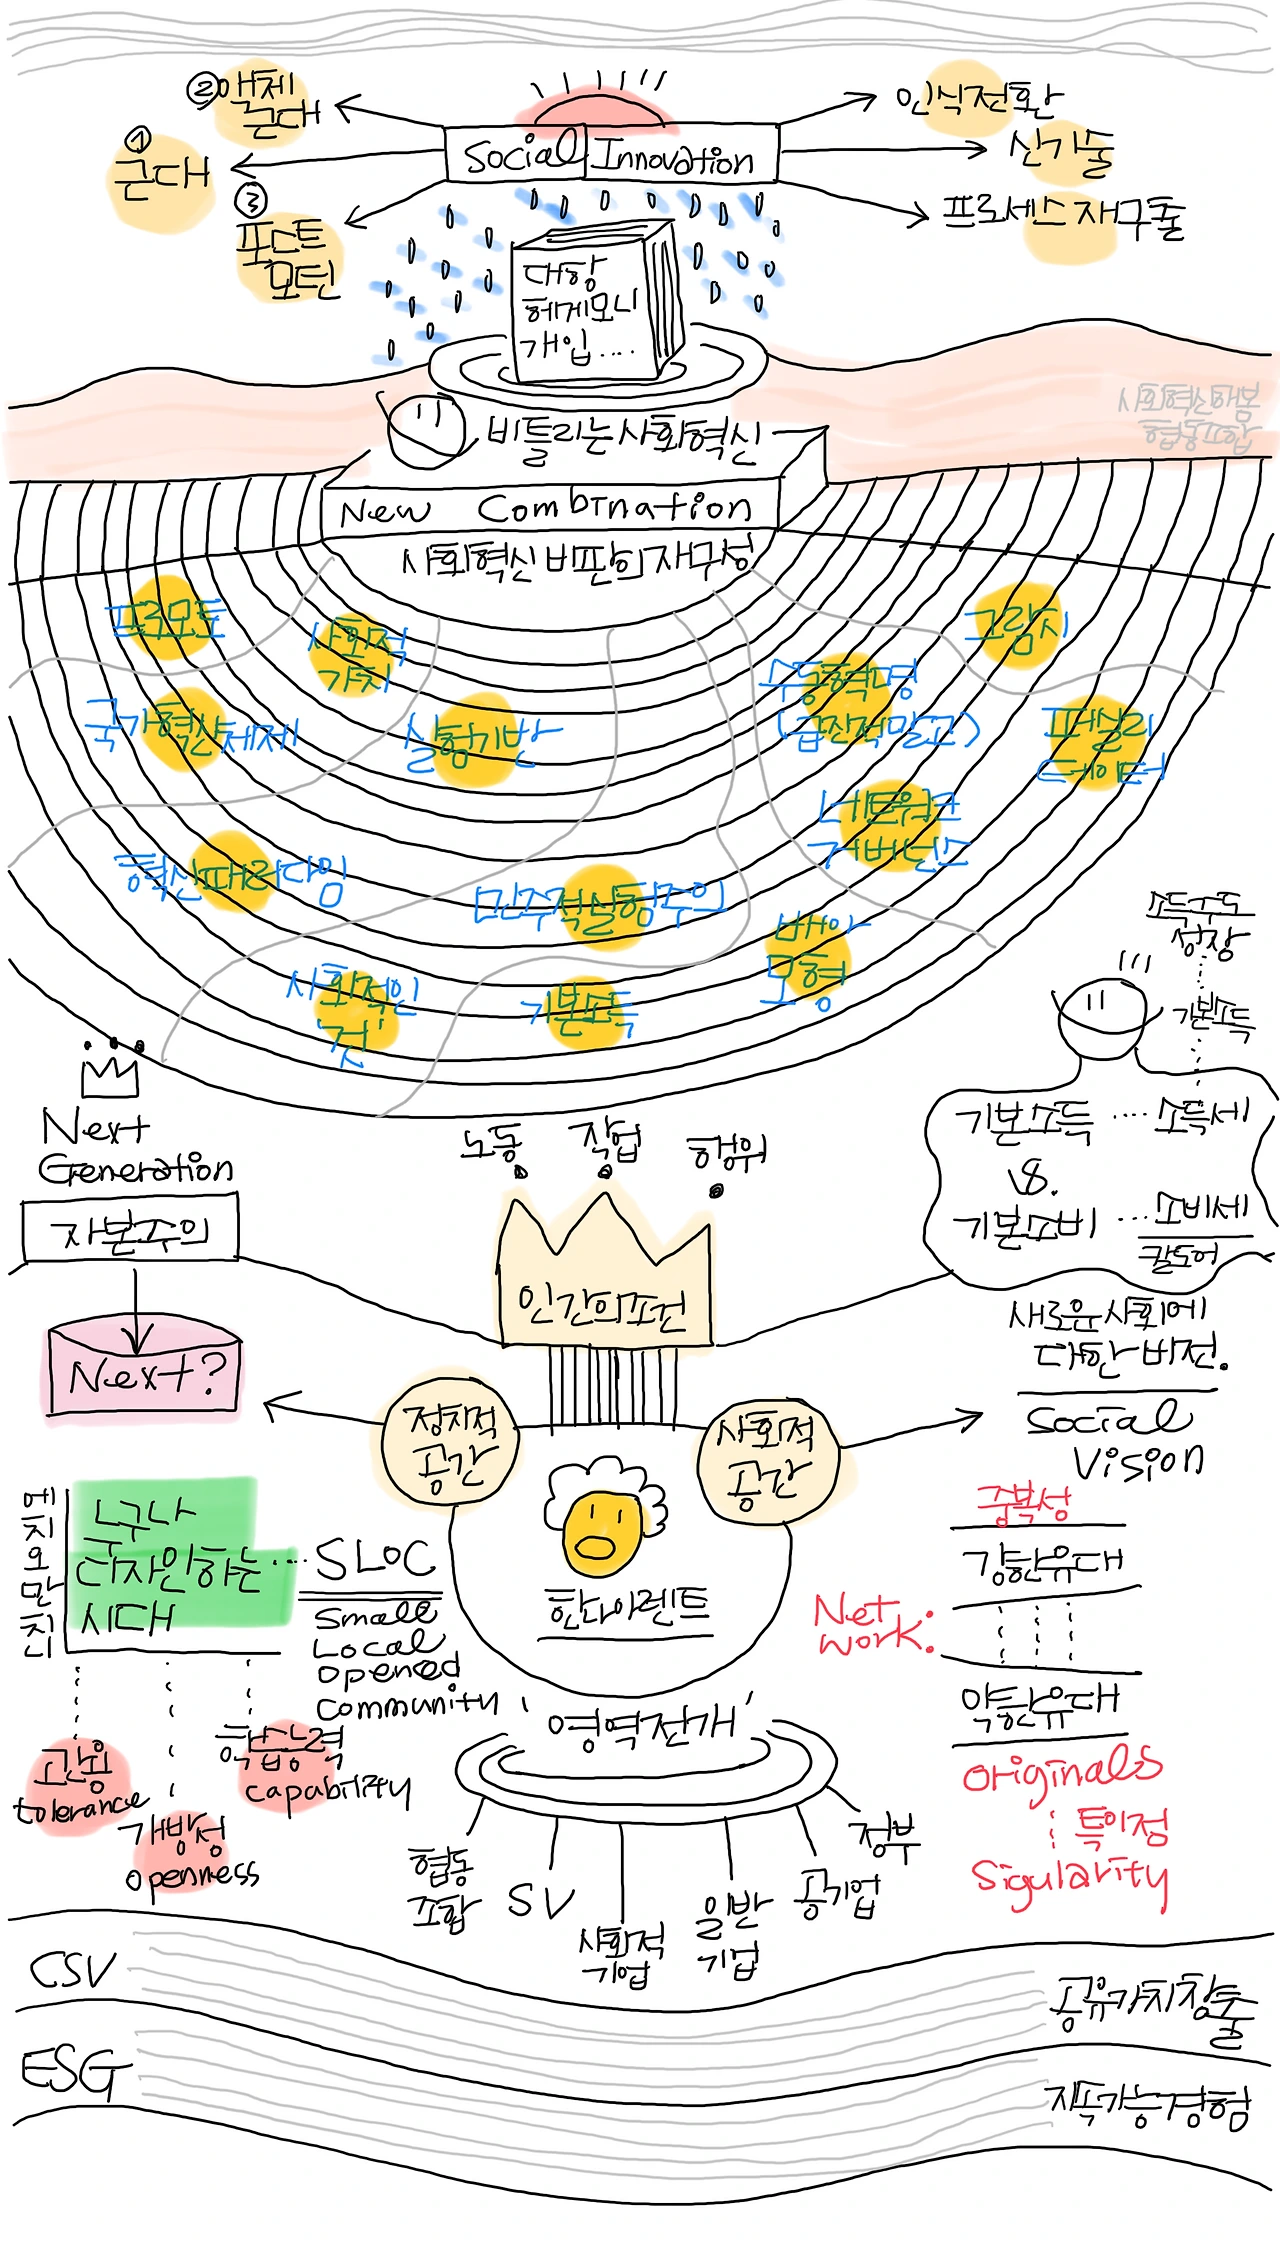 ②액체
근대
①
근대
③
포스트
모던
Social Innovation
인식전환
신기술
프로세스 재구축
대항
헤게모니
개입....
사회혁신해봄
협동조합
비틀리는 사회혁신
New Combination
사회혁신 비판의 재구성
프로모토
사회적
가치
그람시
국가혁신체제
실험기반
수동혁명
(급진적말고)
퍼실리
테이터
네트워크
거버넌스
혁신패러다임
민주적실험주의
배아
모형
사회적인
'것'
기본소득
소득주도
성장
기본소득
기본소득 .... 소득세
VS.
기본소비 ... 소비세
칼도어
Next
Generation
자본주의
Next?
노동
작업
행위
인간의조건
정치적
공간
사회적
공간
새로운 사회에
대한 비전.
Social
Vision
에치오만치니
누구나
디자인하는
시대
... SLOC
Small
Local
opened
community
한나아렌트
'영역전개'
중복성
강한유대
Net
work:
약한유대
Originals
특이점
Sigularity
관용
tolerance
개방성
openness
학습능력
capability
협동
조합
SV
사회적
기업
일반
기업
공기업
정부
CSV
공유가치창출
ESG
지속가능경험